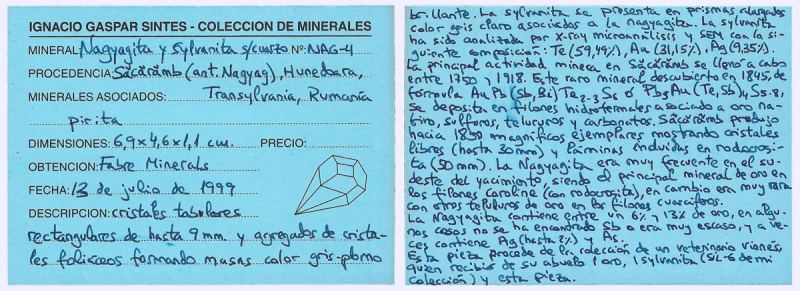 IGNACIO GASPAR SINTES - COLECCION DE MINERALES
MINERAL: Nagyagita y Sylvanita s/cuarzo Nº: NAG-4
PROCEDENCIA: Săcărâmb (ant. Nagyag), Hunedoara,
MINERALES ASOCIADOS: Transylvania, Rumanía
pirita
DIMENSIONES: 6,9x4,6x1,1 cm. PRECIO:
OBTENCION: Fabre Minerals
FECHA: 13 de julio de 1999
DESCRIPCION: cristales tabulares
rectangulares de hasta 9mm. y agregados de crista-
les foliáceos formando masas color gris-plomo
brillante. La sylvanita se presenta en prismas alargados
color gris claro asociados a la nagyagita. La sylvanita
ha sido analizada por X-ray microanálisis y SEM con la si-
guiente composición: Te (59,49%), Au (31,15%), Ag (9,35%).
La principal actividad minera en Săcărâmb se llevó a cabo
entre 1750 y 1918. Este raro mineral descubierto en 1845, de
fórmula Au Pb (Sb, Bi) Te2-3 S6 ó Pb5Au(Te,Sb)4S5-8,
se deposita en filones hidrotermales asociado a oro na-
tivo, sulfuros, telururos y carbonatos. Săcărâmb produjo
hacia 1850 magníficos ejemplares mostrando cristales
libres (hasta 30mm) y láminas incluidas en rodocrosi-
ta (50 mm). La Nagyagita era muy frecuente en el su-
deste del yacimiento, siendo el principal mineral de oro en
los filones Caroline (con rodocrosita), en cambio era muy rara
con otros telururos de oro en los filones cuarcíferos.
La Nagyagita contiene entre un 6% y 13% de oro, en algu-
nos casos no se ha encontrado Sb o era muy escaso, y a ve-
ces contiene Ag (hasta 2%) y As.
Esta pieza procede de la colección de un veterinario vienés,
quien recibió de su abuelo 1 oro, 1 sylvanita (SIL-6 de mi
colección) y esta pieza.